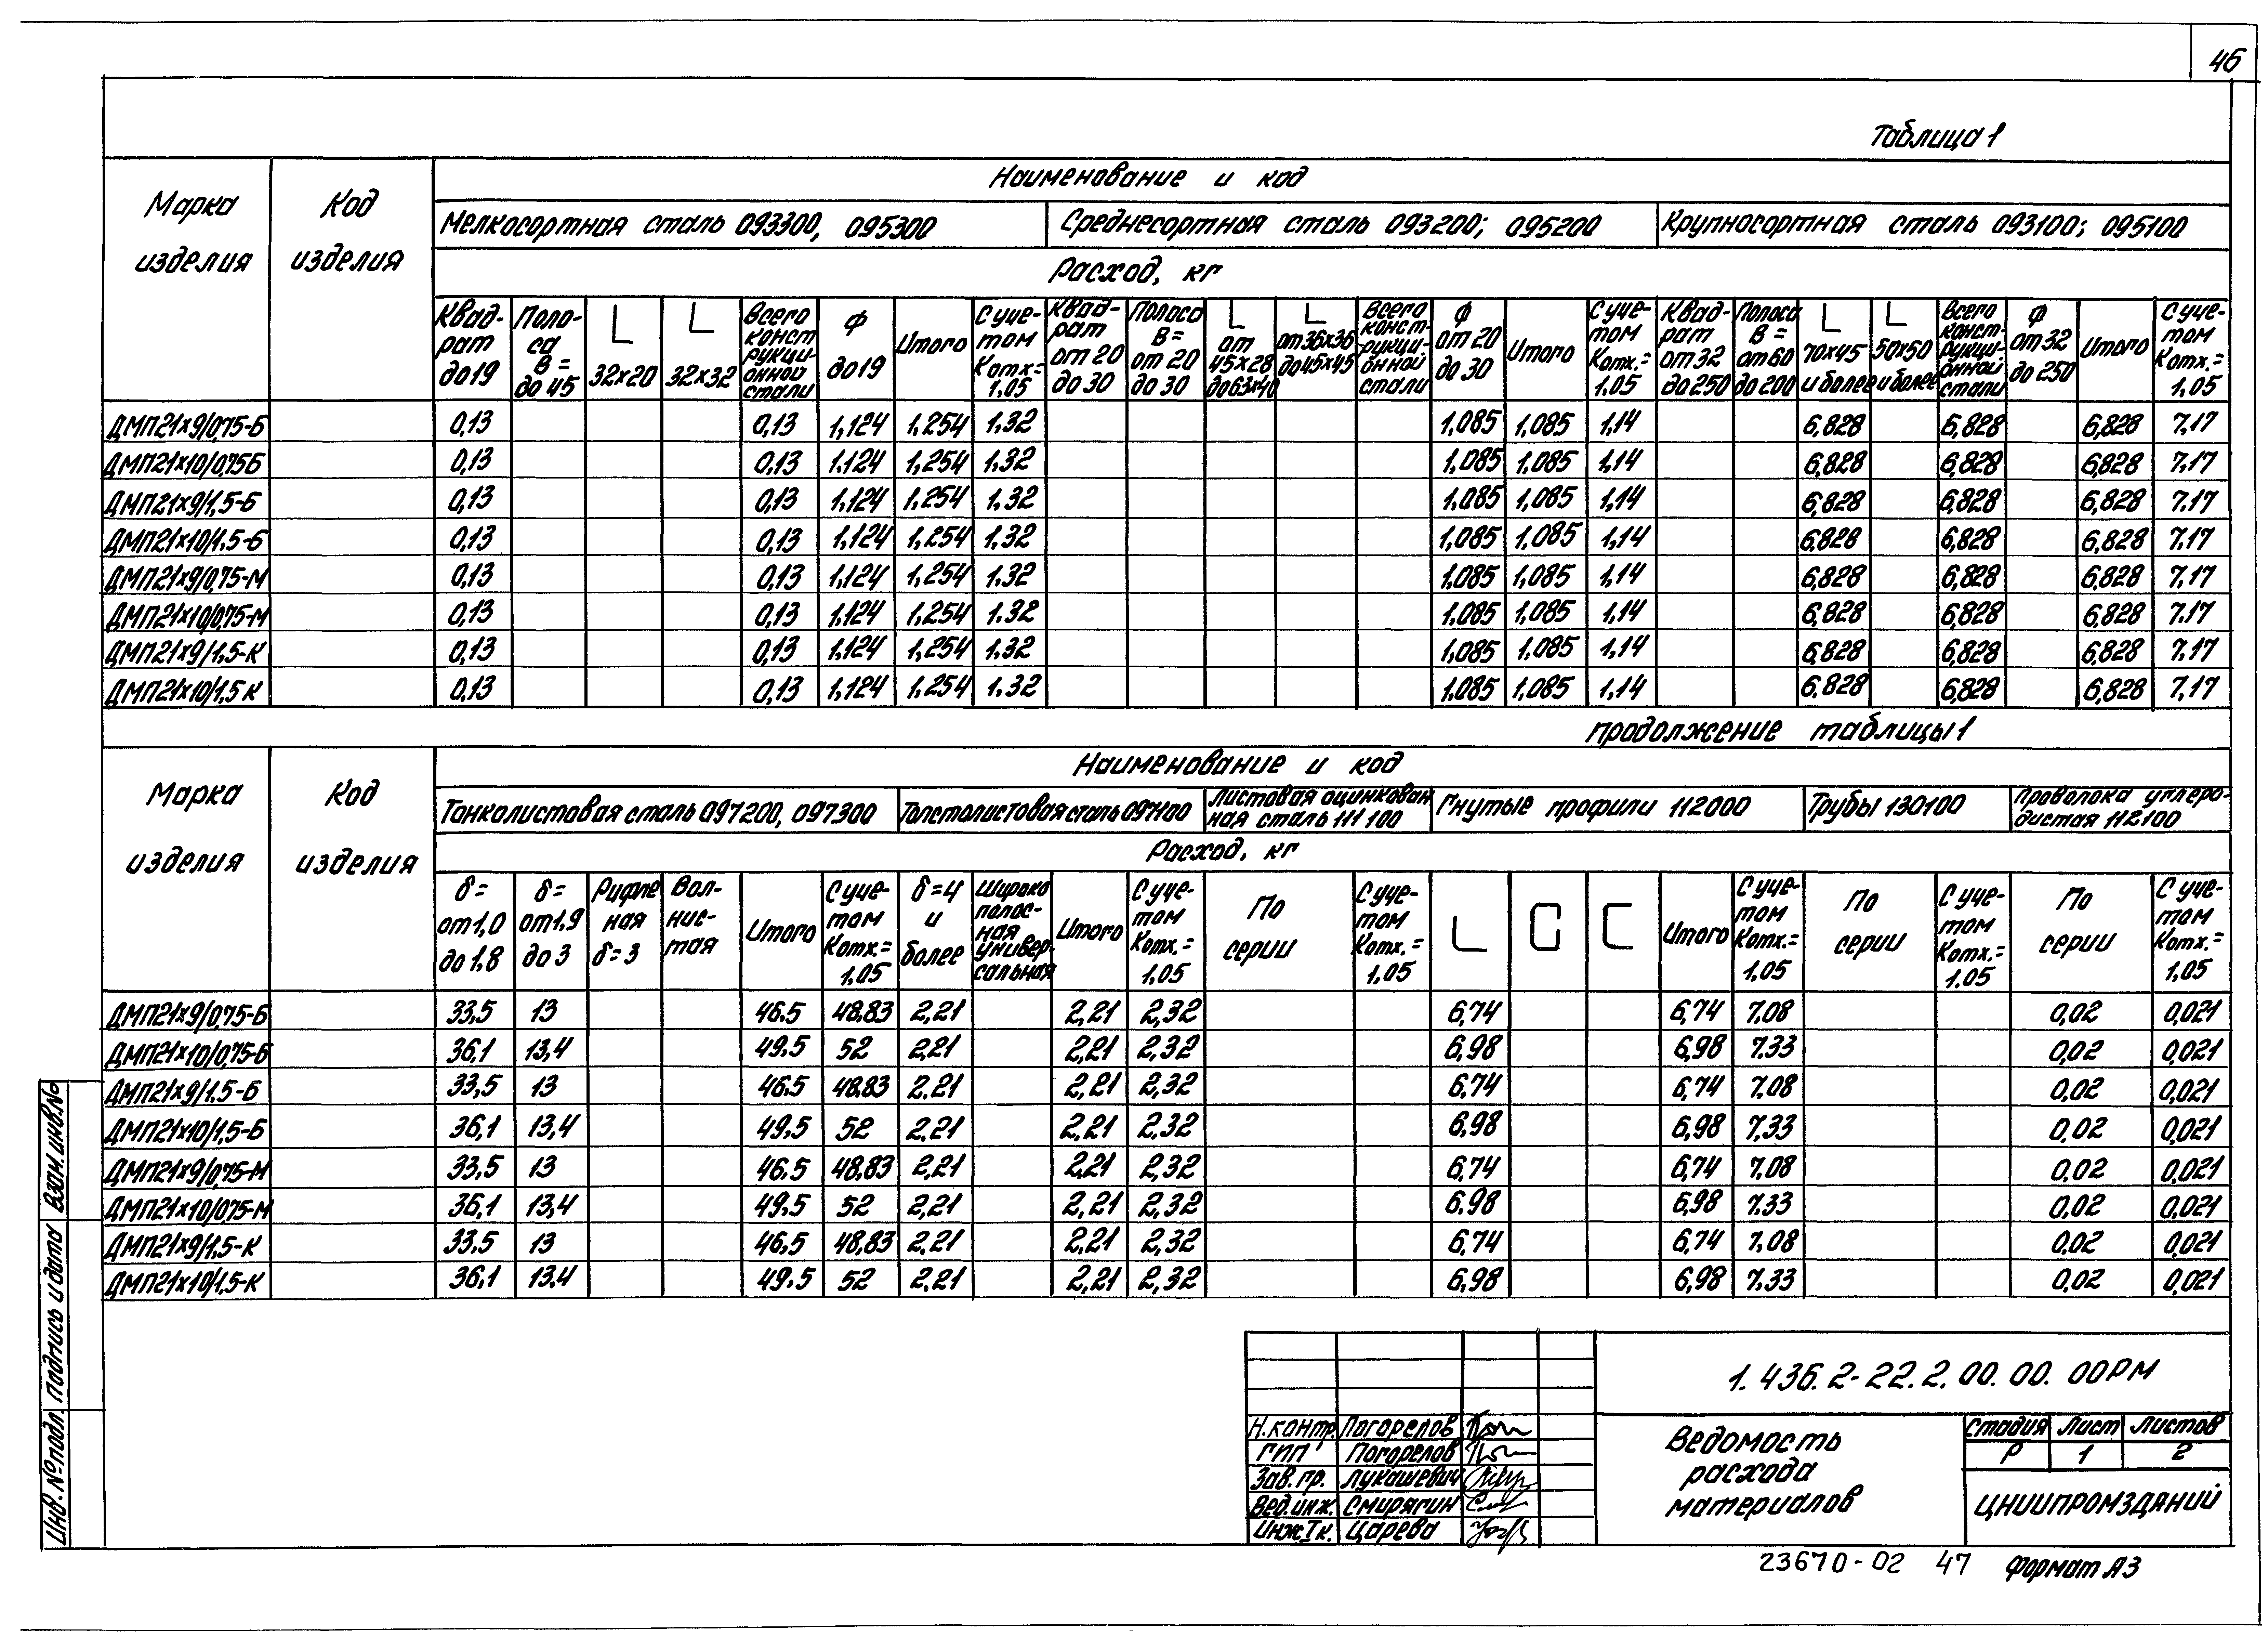 46
Таблица 1
Марка изделия
Код изделия
Наименование и код
Мелкосортная сталь 093300, 095300
Среднесортная сталь 093200; 095200
Крупносортная сталь 093100; 095100
Расход, кг
Квад-рат до 19
Поло-са В= до 45
32х20
32х32
Всего конст рукци-онной стали
Ф до 19
Итого
С уче-том Котх=1.05
Квад-рат от 20 до 30
Полоса В= от 20 до 30
от 45х28 до 63х40
от 36х36 до 45х45
Всего конст-рукци-онной стали
Ф от 20 до 30
Итого
С уче-том Котх.=1.05
Квад-рат от 32 до 250
Полоса В= от 60 до 200
70х45 и более
50х50 и более
Всего конст-рукци-онной стали
Ф от 32 до 250
Итого
С уче-том Котх.=1,05
ДМП21х9/0,75-Б 0,13 0,13 1,124 1,254 1.32 1.085 1,085 1,14 6,828 6,828 6,828 7,17
ДМП21х10/0,75Б 0,13 0,13 1.124 1,254 1.32 1,085 1,085 1,14 6,828 6,828 6,828 7,17
ДМП21х9/1,5-Б 0,13 0,13 1,124 1,254 1.32 1,085 1,085 1,14 6,828 6,828 6,828 7,17
ДМП21х10/1,5-Б 0,13 0,13 1,124 1,254 1.32 1,085 1,085 1,14 6,828 6,828 6,828 7,17
ДМП21х9/0,75-М 0,13 0,13 1,124 1,254 1.32 1,085 1,085 1,14 6,828 6,828 6,828 7,17
ДМП21х10/0,75-М 0,13 0,13 1,124 1,254 1.32 1,085 1,085 1,14 6,828 6,828 6,828 7,17
ДМП21х9/1,5-К 0,13 0,13 1,124 1,254 1.32 1,085 1,085 1,14 6,828 6,828 6,828 7,17
ДМП21х10/1,5К 0,13 0,13 1,124 1,254 1.32 1,085 1,085 1,14 6,828 6,828 6,828 7,17
продолжение таблицы 1
Марка изделия
Код изделия
Наименование и код
Тонколистовая сталь 097200, 097300
Толстолистовая сталь 097100
Листовая оцинкован ная сталь 111100
Гнутые профили 112000
Трубы 130100
Проволока углеро-дистая 112100
Расход, кг
δ= от 1,0 до 1,8
δ= от 1,9 до 3
Рифле ная δ=3
Вол-нис-тая
Итого
С уче-том Котх.=1,05
δ=4 и более
Широко полос-ная универ-сальная
Итого
С уче-том Котх.=1,05
По серии
С уче-том Котх.=1,05
Итого
С уче-том Котх.=1,05
По серии
С уче-том Котх.=1.05
По серии
С уче-том Котх.=1,05
ДМП21х9/0,75-Б 33,5 13 46.5 48,83 2,21 2,21 2,32 6,74 6,74 7.08 0,02 0,021
ДМП21х10/0,75-Б 36,1 13,4 49.5 52 2,21 2,21 2,32 6,98 6,98 7.33 0,02 0,021
ДМП21х9/1.5-Б 33,5 13 46.5 48.83 2.21 2,21 2,32 6,74 6,74 7.08 0,02 0,021
ДМП21х10/1,5-Б 36,1 13,4 49.5 52 2,21 2,21 2,32 6,98 6,98 7.33 0,02 0,021
ДМП21х9/0,75-М 33,5 13 46.5 48,83 2,21 2,21 2,32 6,74 6,74 7.08 0,02 0,021
ДМП21х10/0,75-М 36,1 13,4 49.5 52 2,21 2,21 2,32 6.98 6,98 7.33 0,02 0,021
ДМП21х9/1,5-К 33,5 13 46.5 48,83 2,21 2,21 2,32 6,74 6,74 7,08 0,02 0,021
ДМП21х10/1,5-К 36,1 13,4 49.5 52 2,21 2,21 2,32 6,98 6,98 7.33 0,02 0,021
Взам. инв.№
Подпись и дата
Инв.№ подл.
1.436.2-22.2.00.00.00РМ
Н.контр. Погорелов
ГИП Погорелов
Зав.гр. Лукашевич
Вед.инж. Смирягин
Инж.Iк. Царева
Ведомость расхода материалов
Стадия Лист Листов
Р 1 2
ЦНИИПРОМЗДАНИЙ
23670-02 47 Формат А3